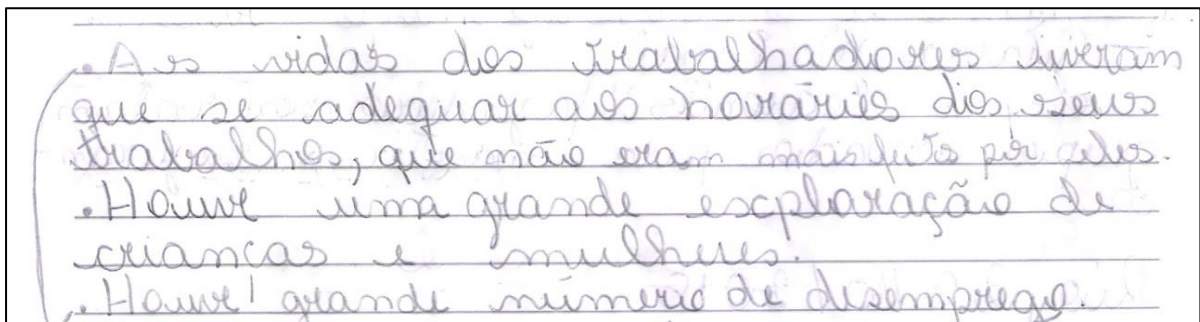 .As vidas dos trabalhadores tiveram
que se adequar aos horários dos seus
trabalhos, que não eram mais feitos por eles.
.Houve uma grande exploração de
crianças e mulheres.
.Houve grande número de desemprego.